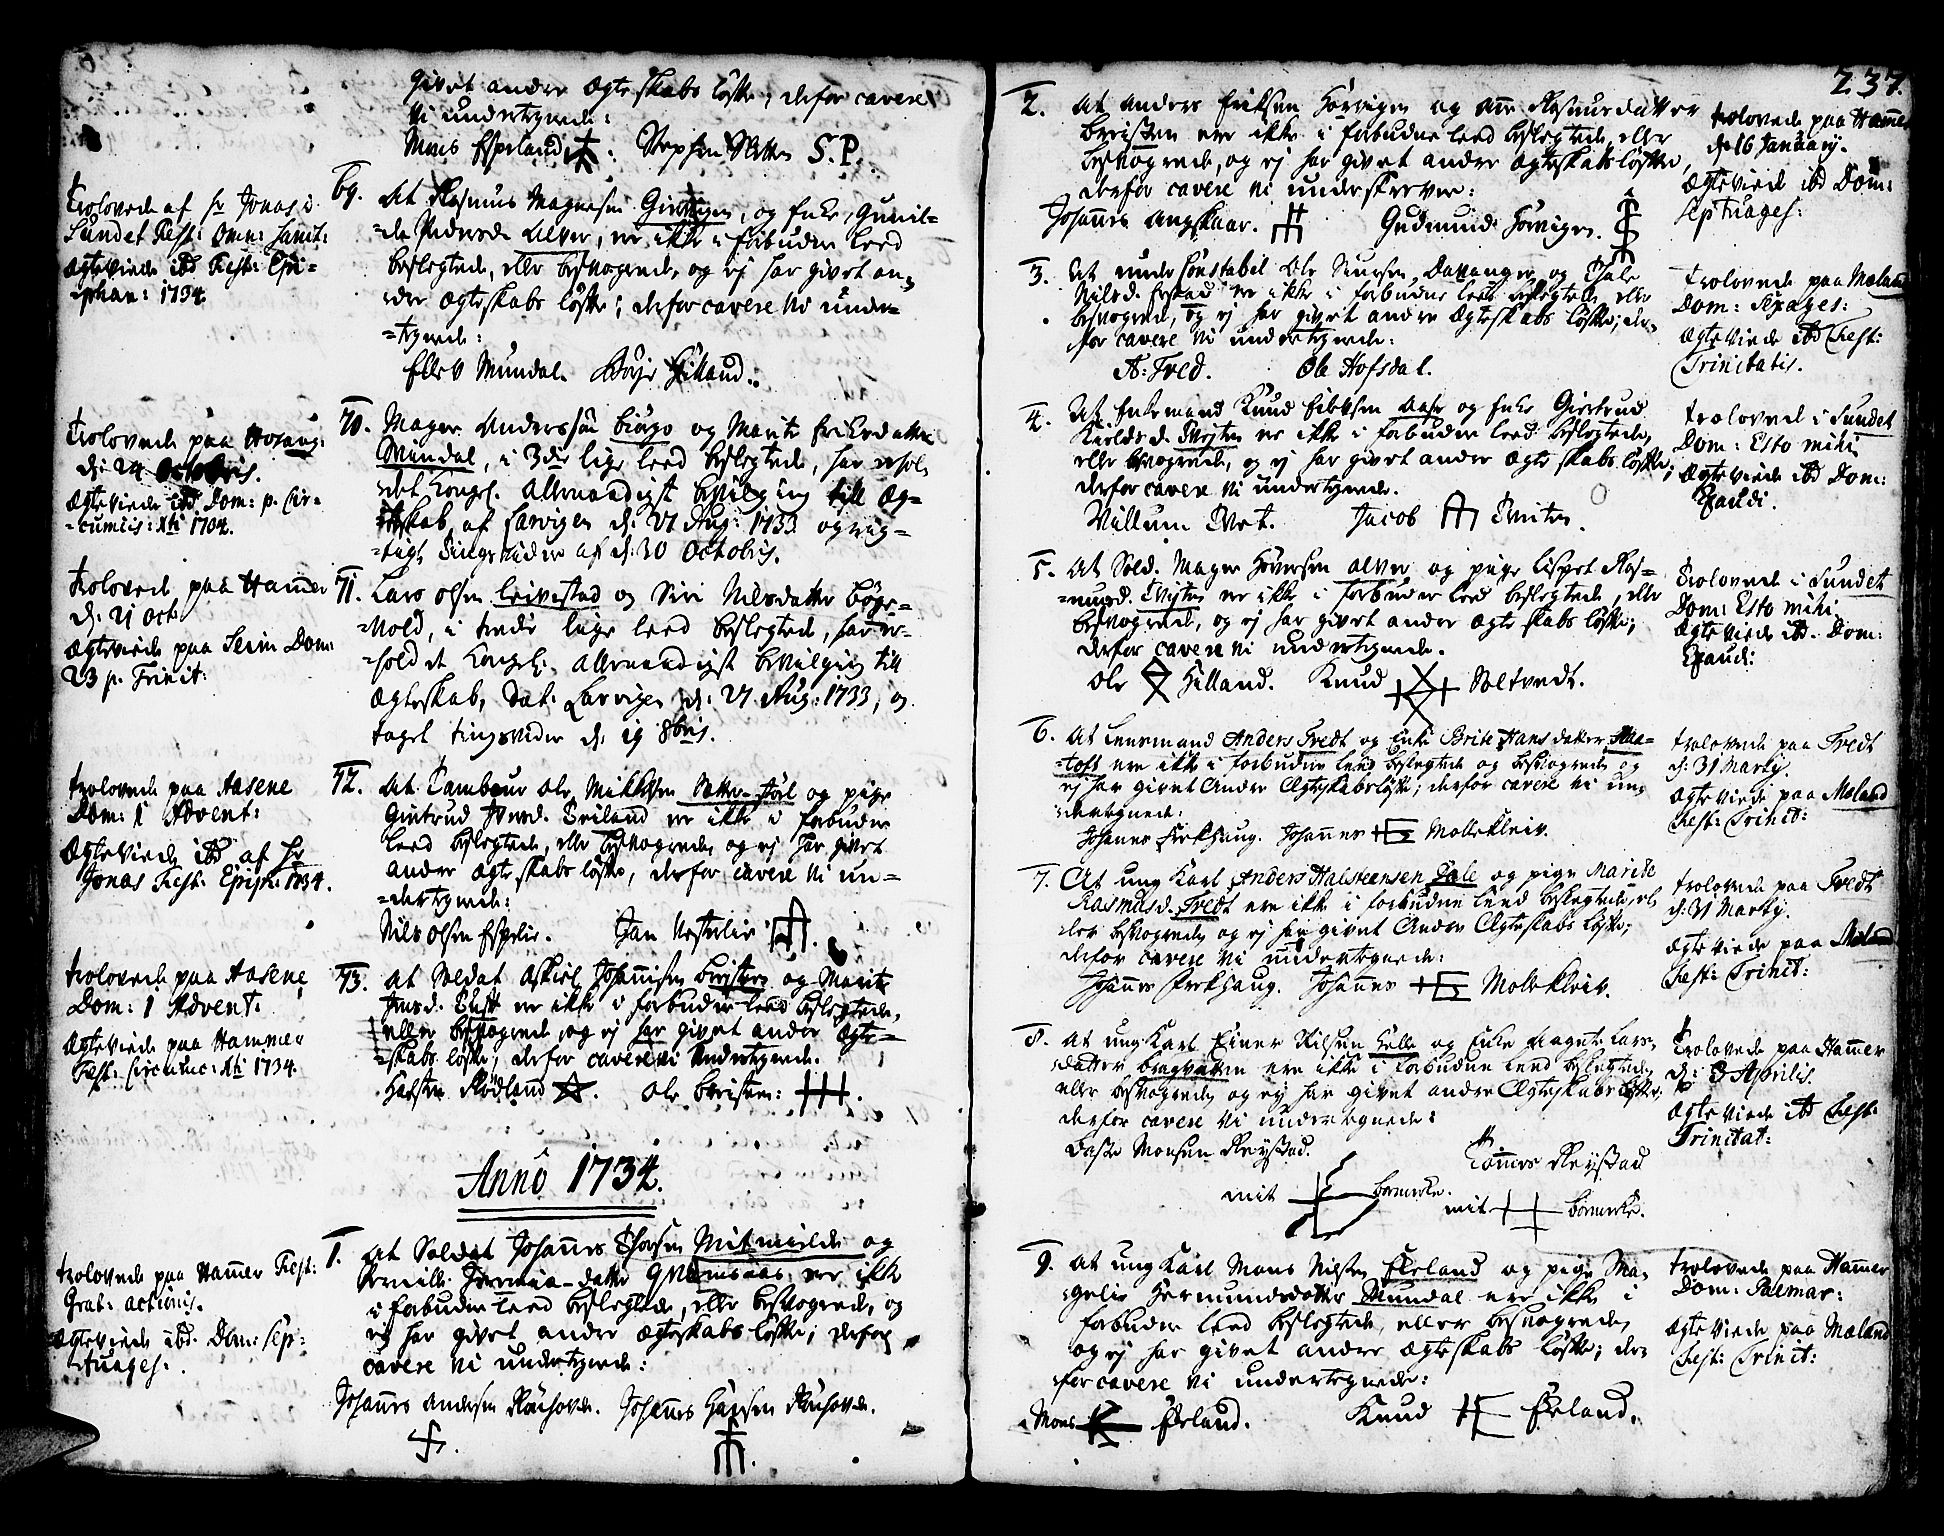 237.
givet andre Ægteskabs löfte; derfor cavere
vi undertegnede:
Mons Espeland : Stephen Sætter S. P.
trolovede af hr Jonas i
Sundet Fest: Omn: Sanct:
Ægteviede ibd Fest: Epi-
phan: 1734.
69. At Rasmus Magnesen Giertigen, og Enke, Gunil-
-de Pedersd. Alver, ere ikke i forbuden leed
beslegtede, eller besvogrede, og ej har givet an-
dre Ægteskabs löfte; derfor cavere vi under-
-tegnede:
Ellev Mundal. Börge Hilland.
trolovede paa Hosang:
d: 24 Octobris.
Ægteviede ibd Dom: p. Cir-
-cumcis: Xti 1704.
70. Mager Anderssön Biörgo og Marite Eriksdatter
Mundal, i 3die lige leed beslegtede, har erhol-
det Kongel. allernaadigst bevilgning till Æg-
teskab, af Larvigen d: 27 Aug: 1733 og rig-
-tigt Tingsvidne af d: 30 Octobris.
trolovede paa Hammer
d: 21 Oct.
Ægteviede paa Seim Dom:
23 p. Trinit:
71. Lars Olsen Leivestad og Siri Nilsdatter Böge-
-vold, i tredie lige leed beslegtede, har er-
-holdet Kongel: allernaadigst bevilgning till
Ægteskab, dat: Larvigen d: 27 Aug: 1733, og
taget tingsvidne d: 19 8bris.
trolovede paa Aasene
Dom: 1 Advent:
Ægteviede ibd af hr
Jonas Fest: Epiph: 1734.
72. At Tambour Ole Mikkelsen Sætter-stöel og pige
Giertrud Iversd. Eriland ere ikke i forbuden
leed beslegtede, eller besvogrede, og ej har givet
andre Ægteskabs löfte, derfor cavere vi un-
-dertegnede:
Nils Olsen Espelie. Jan Westerlie
trolovede paa Aasene
Dom: 1 Advent:
Ægteviede paa Hammer
Fest: Circumc: Xti 1734.
73. At Soldat Askiel Johannisen Breisten og Marite
Jensd. ere ikke i forbuden leed beslegtede,
eller besvogrede, og ej har givet andre Ægte-
-skabs löfte; derfor cavere vi undertegnede.
Halsten Rödland. Ole Breisten:
Anno 1734.
trolovede paa Hammer Fest:
Grat: actionis.
Ægteviede ibd. Dom: Sep-
tuages:
1. At Soldat Johannes Thorsen Mitmielde og
Pernille Jeremia-datter ere ikke
i forbuden leed beslegtede, eller besvogrede, og
ej har givet andre Ægteskabs löfte; derfor
cavere vi undertegnede:
Johannes Andersen Röshovde. Johannes Hansen Röshovde.
2. At Anders Eriksen Hörvigen og Anne Rasmusdatter
Breisten ere ikke i forbudne leed beslegtede, eller
besvogrede, og ej har givet andre Ægteskabs löfte,
derfor cavere vi underskrevne:
Johannes Angskaar. Gudmund Hörvigen.
trolovede paa Hammer
d: 16 January.
Ægteviede ibd Dom:
Septuages:
3. At under Constabel Ole Knutsen Davanger og
Nilsd. Espeland ere ikke i forbudne leed beslegtede eller
besvogrede, og ej har givet andre Ægteskabs löfte; der-
for cavere vi undertegnede:
A: Tred. Ole Hofsdal.
trolovede paa Meland
Dom: Sexages:
Ægteviede ibd Fest:
Trinitatis.
4. At Enkemand Knud Erichsen Aase og Enke Giertrud
Karlsd. Tveiten ere ikke i forbudne leed beslegtede,
eller besvogrede, og ej har givet andre Ægteskabs löfte;
derfor cavere vi undertegnede.
Villum Tvet. Jacob Tveiten.
trolovede i Sundet
Dom: Esto mihi
Ægteviede ibd Dom:
Exaudi.
5. At Sold. Mager Iversen Alver og pige Lisbet Ras-
-musd. Tveiten ere ikke i forbuden leed beslegtede, eller
besvogrede, og ej har givet andre Ægteskabs löfte;
derfor cavere vi undertegnede.
Ole Hilland. Knud Soltvedt.
trolovede i Sundet
Dom: Esto mihi
Ægteviede ibd. Dom:
Exaudi:
6. At Lensmand Anders Tvedt og Enke Brite Hans datter
-toft ere ikke i forbudne leed beslegtede og besvogrede og
ej har givet Andre Ægteskabs löfte; derfor cavere vi un-
dertegnede:
Johannes Erkhaug. Johannes Mollekleiv.
trolovede paa Tvedt
d: 31 Marty.
Ægteviede paa Meland
Fest: Trinit:
7. At ung Karl Anders Halsteensen Dale og pige Marite
Rasmusd. Tvedt ere ikke i forbudne leed beslegtede, el-
ler besvogrede og ej har givet Andre Ægteskabs löfte;
derfor cavere vi undertegnede:
Johannes Erkhaug. Johannes Mollekleiv.
trolovede paa Tvedt
d: 31 Marty.
Ægteviede paa Meland
Fest: Trinit:
8. At ung Karl Einer Nilsen Helle og Enke Magnete Lars-
datter ere ikke i forbudne leed beslegtede
eller besvogrede og ej har givet andre Ægteskabs löfte;
derfor cavere vi undertegnede:
Baste Monsen Reystad. Tomes Reystad
mit bomerke. mit bomerke.
trolovede paa Hammer
d: 3 Aprilis.
Ægteviede ibd Fest:
Trinitat:
9. At ung Karl Mons Nilsen Eseland og pige Ma-
gelie Hermundsdatter Mundal ere ikke i
forbuden leed beslegtede, eller besvogrede,
og ej har givet andre Ægteskabs löfte; der-
for cavere vi undertegnede:
Mons Eseland. Knud Eseland.
trolovede paa Hammer
Dom: Palmar:
Ægteviede paa Meland
Fest: Trinit: